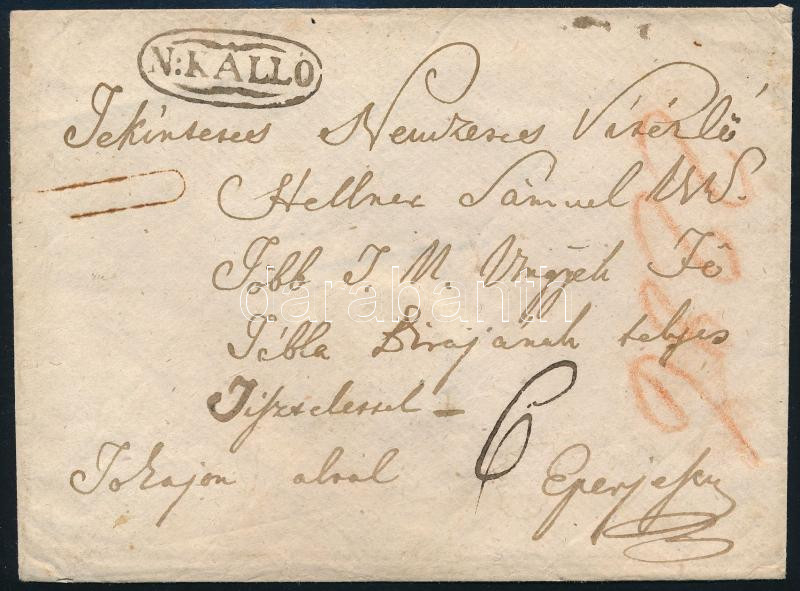 N:KÁLLÓ
Tekíntetes Nemzetes Vitézlő
Hellner Sámuel
Több T. N. Vngvh Fő
Tábla Birájának teljes
Tisztelettel –
6
Tokajon által Eperjesen
darabanth